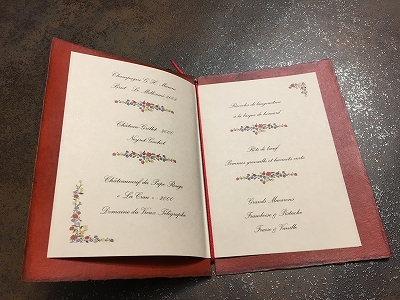 Champagne G. H. Mumm
Brut - Le Millésimé
Château Grillet
Neyret-Gachet
Châteauneuf du Pape Rouge
« La Crau » - 2000
Domaine du Vieux Télégraphe
de langoustines
à la bisque de homard
Filet de bœuf
Pommes grenailles et haricots verts
Grands Macarons
Framboise & Pistache
Fraise & Vanille